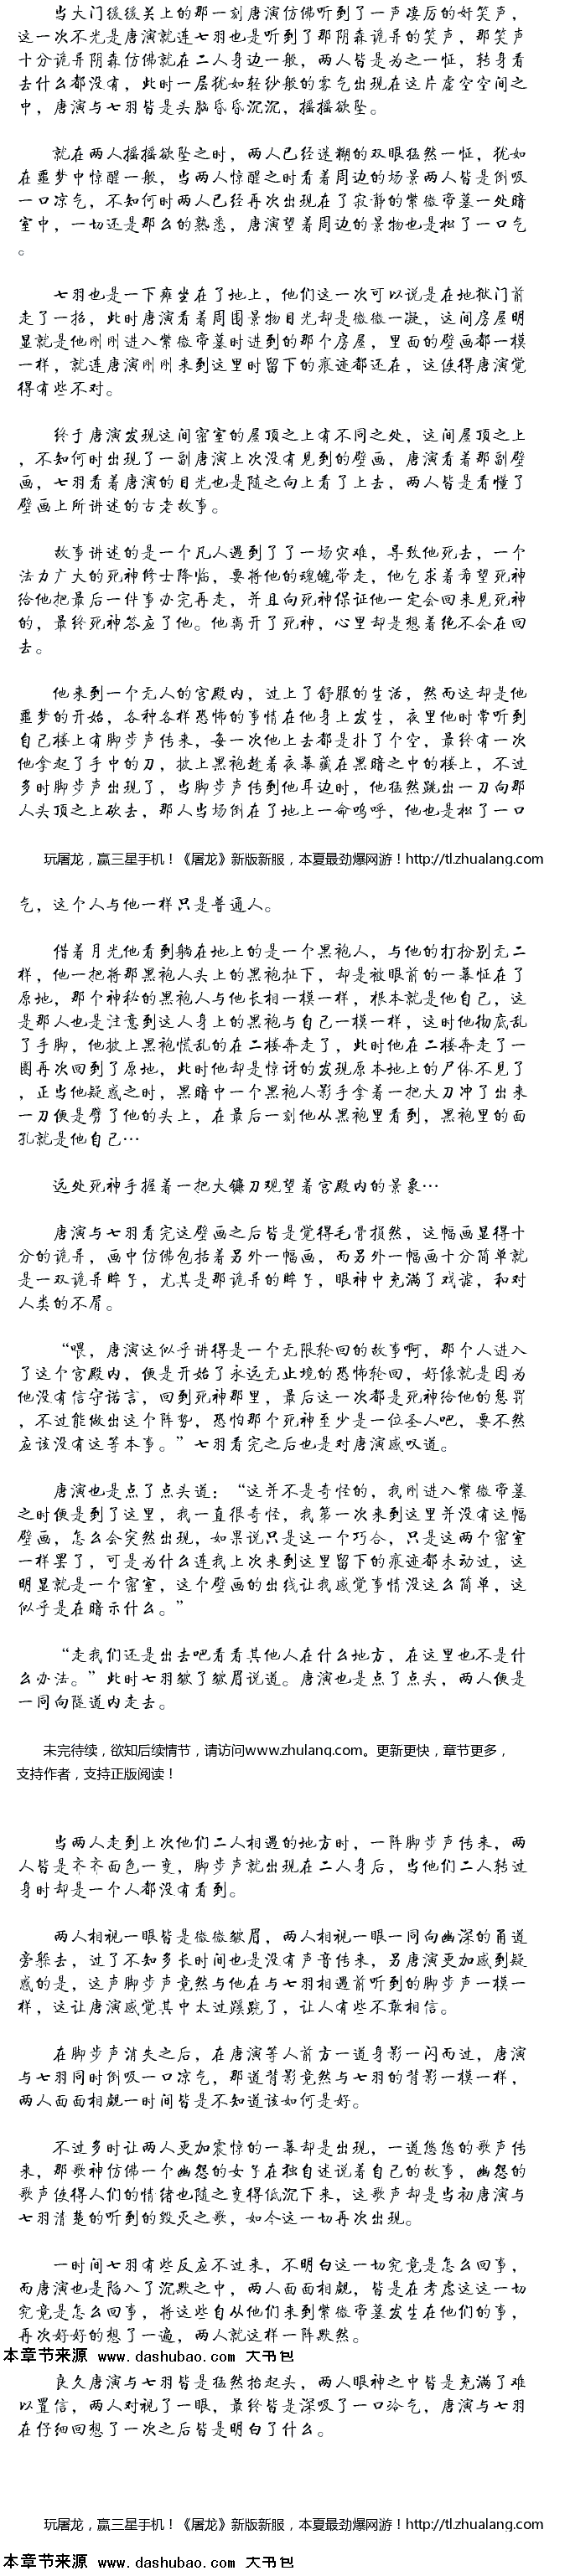 当大门缓缓关上的那一刻唐演仿佛听到了一声凄厉的奸笑声，
这一次不光是唐演就连七羽也是听到了那阴森诡异的笑声，那笑声
十分诡异阴森仿佛就在二人身边一般，两人皆是为之一怔，转身看
去什么都没有，此时一层犹如轻纱般的雾气出现在这片虚空空间之
中，唐演与七羽皆是头脑昏昏沉沉，摇摇欲坠。
就在两人摇摇欲坠之时，两人已经迷糊的双眼猛然一怔，犹如
在噩梦中惊醒一般，当两人惊醒之时看着周边的场景两人皆是倒吸
一口凉气，不知何时两人已经再次出现在了寂静的紫微帝墓一处暗
室中，一切还是那么的熟悉，唐演望着周边的景物也是松了一口气
。
七羽也是一下瘫坐在了地上，他们这一次可以说是在地狱门前
走了一招，此时唐演看着周围景物目光却是微微一凝，这间房屋明
显就是他刚刚进入紫微帝墓时进到的那个房屋，里面的壁画都一模
一样，就连唐演刚刚来到这里时留下的痕迹都还在，这使得唐演觉
得有些不对。
终于唐演发现这间密室的屋顶之上有不同之处，这间屋顶之上
，不知何时出现了一副唐演上次没有见到的壁画，唐演看着那副壁
画，七羽看着唐演的目光也是随之向上看了上去，两人皆是看懂了
壁画上所讲述的古老故事。
故事讲述的是一个凡人遇到了了一场灾难，导致他死去，一个
法力广大的死神修士降临，要将他的魂魄带走，他乞求着希望死神
给他把最后一件事办完再走，并且向死神保证他一定会回来见死神
的，最终死神答应了他。他离开了死神，心里却是想着绝不会在回
去。
他来到一个无人的宫殿内，过上了舒服的生活，然而这却是他
噩梦的开始，各种各样恐怖的事情在他身上发生，夜里他时常听到
自己楼上有脚步声传来，每一次他上去都是扑了个空，最终有一次
他拿起了手中的刀，披上黑袍趁着夜幕藏在黑暗之中的楼上，不过
多时脚步声出现了，当脚步声传到他耳边时，他猛然跳出一刀向那
人头顶之上砍去，那人当场倒在了地上一命呜呼，他也是松了一口
玩屠龙，赢三星手机！《屠龙》新版新服，本夏最劲爆网游！http://tl.zhualang.com
气，这个人与他一样只是普通人。
借着月光他看到躺在地上的是一个黑袍人，与他的打扮别无二
样，他一把将那黑袍人头上的黑袍扯下，却是被眼前的一幕怔在了
原地，那个神秘的黑袍人与他长相一模一样，根本就是他自己，这
是那人也是注意到这人身上的黑袍与自己一模一样，这时他彻底乱
了手脚，他披上黑袍慌乱的在二楼奔走了，此时他在二楼奔走了一
圈再次回到了原地，此时他却是惊讶的发现原本地上的尸体不见了
，正当他疑惑之时，黑暗中一个黑袍人影手拿着一把大刀冲了出来
一刀便是劈了他的头上，在最后一刻他从黑袍里看到，黑袍里的面
孔就是他自己…
远处死神手握着一把大镰刀观望着宫殿内的景象…
唐演与七羽看完这壁画之后皆是觉得毛骨损然，这幅画显得十
分的诡异，画中仿佛包括着另外一幅画，而另外一幅画十分简单就
是一双诡异眸子，尤其是那诡异的眸子，眼神中充满了戏谑，和对
人类的不屑。
“喂，唐演这似乎讲得是一个无限轮回的故事啊，那个人进入
了这个宫殿内，便是开始了永远无止境的恐怖轮回，好像就是因为
他没有信守诺言，回到死神那里，最后这一次都是死神给他的惩罚
，不过能做出这个阵势，恐怕那个死神至少是一位圣人吧，要不然
应该没有这等本事。”七羽看完之后也是对唐演感叹道。
唐演也是点了点头道：“这并不是奇怪的，我刚进入紫微帝墓
之时便是到了这里，我一直很奇怪，我第一次来到这里并没有这幅
壁画，怎么会突然出现，如果说只是这一个巧合，只是这两个密室
一样罢了，可是为什么连我上次来到这里留下的痕迹都未动过，这
明显就是一个密室，这个壁画的出线让我感觉事情没这么简单，这
似乎是在暗示什么。”
“走我们还是出去吧看看其他人在什么地方，在这里也不是什
么办法。”此时七羽皱了皱眉说道。唐演也是点了点头，两人便是
一同向隧道内走去。
未完待续，欲知后续情节，请访问www.zhulang.com。更新更快，章节更多，
支持作者，支持正版阅读！
当两人走到上次他们二人相遇的地方时，一阵脚步声传来，两
人皆是齐齐面色一变，脚步声就出现在二人身后，当他们二人转过
身时却是一个人都没有看到。
两人相视一眼皆是微微皱眉，两人相视一眼一同向幽深的甬道
旁躲去，过了不知多长时间也是没有声音传来，另唐演更加感到疑
惑的是，这声脚步声竟然与他在与七羽相遇前听到的脚步声一模一
样，这让唐演感觉其中太过蹊跷了，让人有些不敢相信。
在脚步声消失之后，在唐演等人前方一道身影一闪而过，唐演
与七羽同时倒吸一口凉气，那道背影竟然与七羽的背影一模一样，
两人面面相觑一时间皆是不知道该如何是好。
不过多时让两人更加震惊的一幕却是出现，一道悠悠的歌声传
来，那歌神仿佛一个幽怨的女子在独自述说着自己的故事，幽怨的
歌声使得人们的情绪也随之变得低沉下来，这歌声却是当初唐演与
七羽清楚的听到的毁灭之歌，如今这一切再次出现。
一时间七羽有些反应不过来，不明白这一切究竟是怎么回事，
而唐演也是陷入了沉默之中，两人面面相觑，皆是在考虑这这一切
究竟是怎么回事，将这些自从他们来到紫微帝墓发生在他们的事，
再次好好的想了一遍，两人就这样一阵默然。
本章节来源 www.dashubao.com 大书包
良久唐演与七羽皆是猛然抬起头，两人眼神之中皆是充满了难
以置信，两人对视了一眼，最终皆是深吸了一口冷气，唐演与七羽
在仔细回想了一次之后皆是明白了什么。
玩屠龙，赢三星手机！《屠龙》新版新服，本夏最劲爆网游！http://tl.zhualang.com
本章节来源 www.dashubao.com 大书包